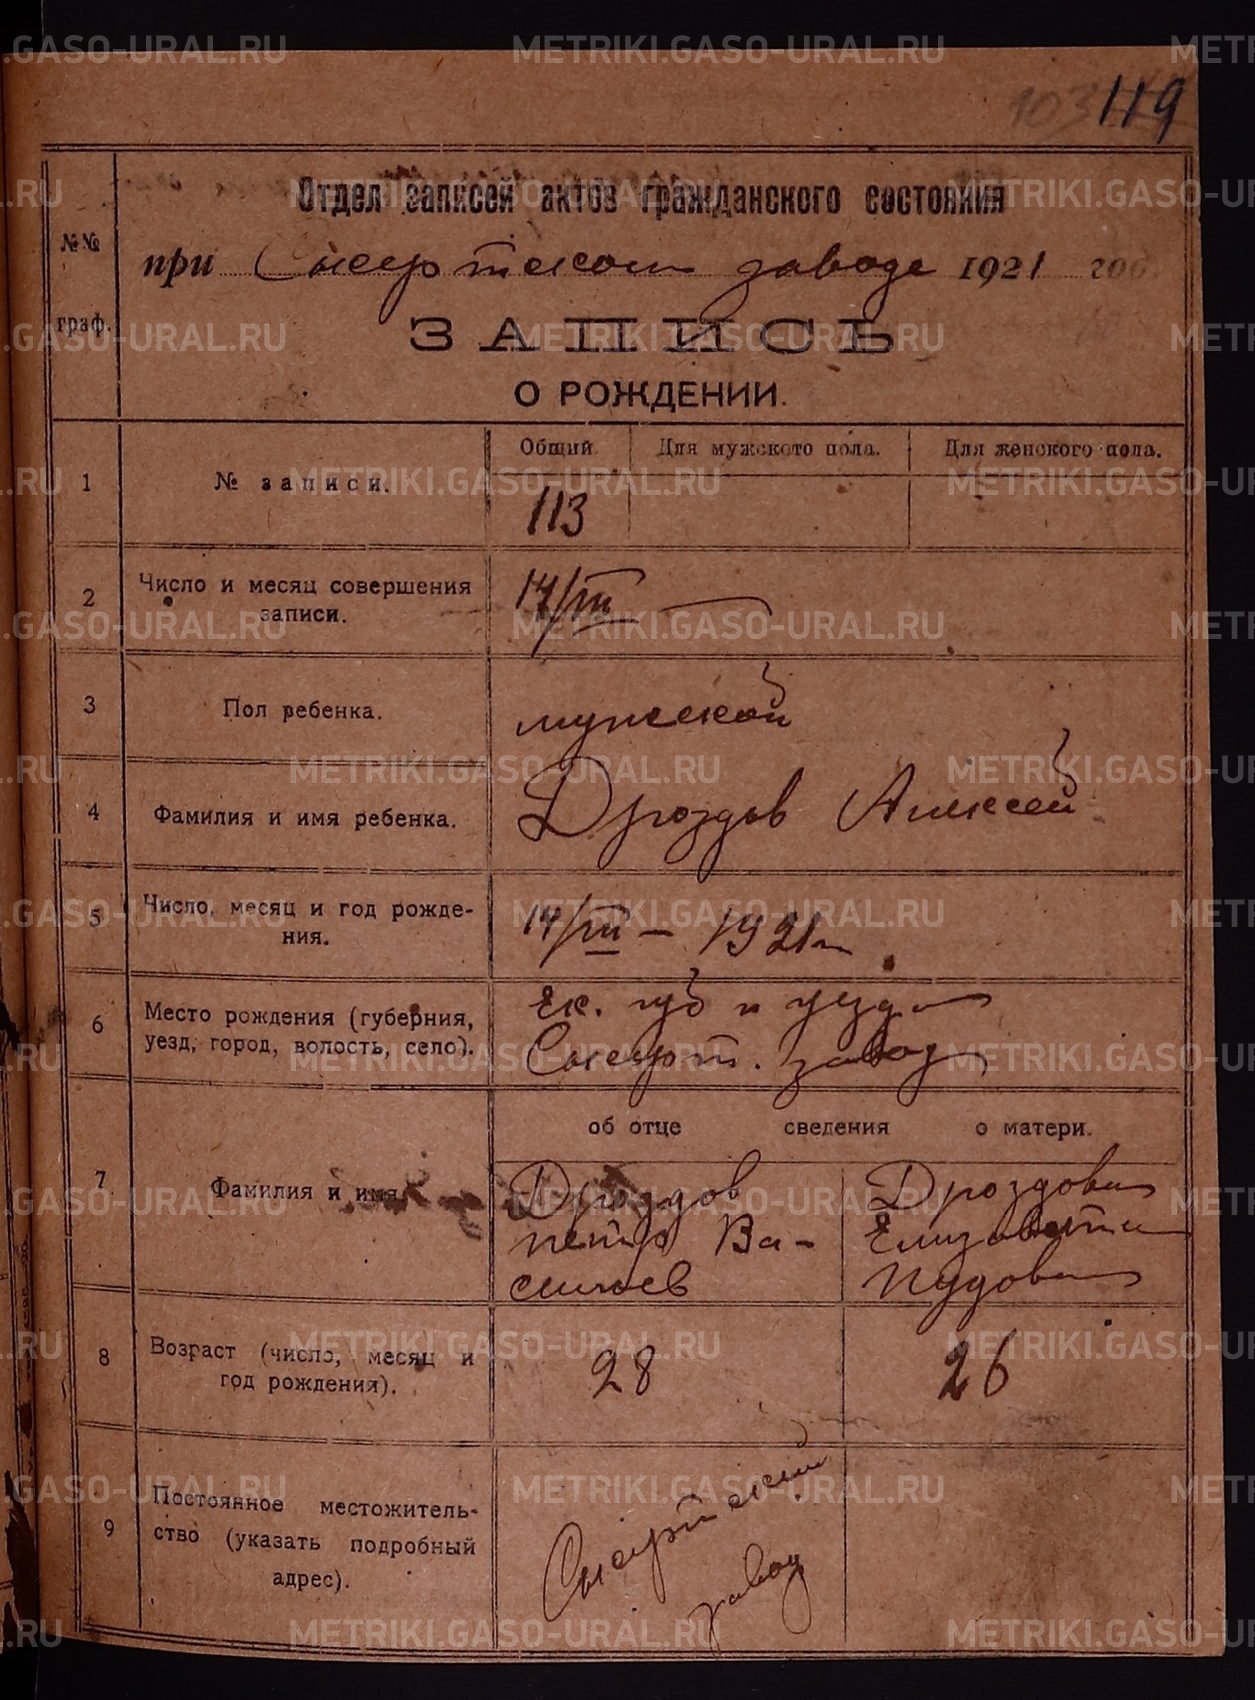 METRIKI.GASO-URAL.RU
103 119
Отдел записей актов гражданского состояния
№№ граф.
при Сысертском заводе 1921 год
ЗАПИСЬ
О РОЖДЕНИИ.
1 № записи. Общий. Для мужского пола. Для женского пола.
113
2 Число и месяц совершения записи. 14/III
3 Пол ребенка. мужской
4 Фамилия и имя ребенка. Дроздов Алексей
5 Число, месяц и год рожде-
ния. 14/III — 1921 г.
6 Место рождения (губерния, Ек. губ и уезда
уезд, город, волость, село). Сысерт. завод
об отце сведения о матери.
7 Фамилия и имя. Дроздов Дроздова
Петр Ва- Елизавета
сильев Пудовна
8 Возраст (число, месяц и 28 26
год рождения).
9 Постоянное местожитель-
ство (указать подробный
адрес).
Сысертский
завод